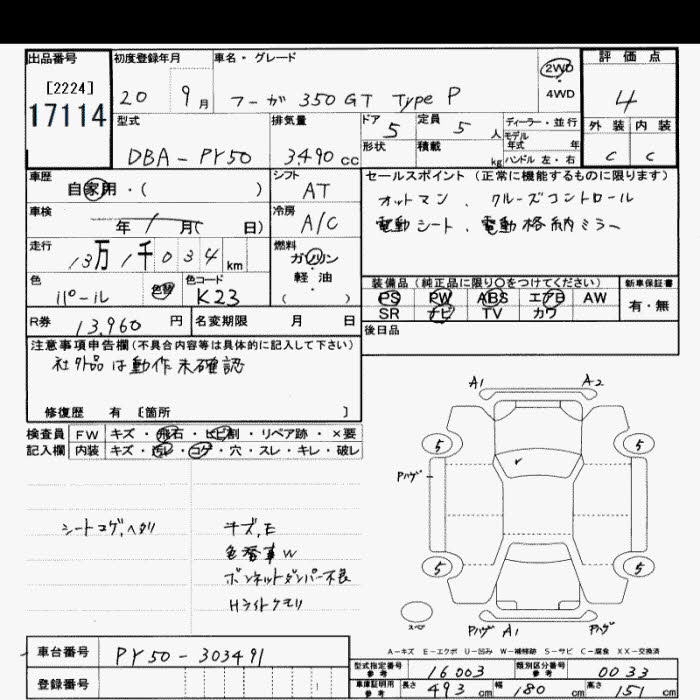 出品番号 初度登録年月 車名・グレード 2WD 評価点
[2224] 20 9月 フーガ 350GT Type P 4WD 4
17114 型式 排気量 ドア 5 定員 5人 ディーラー・並行 外装 内装
モデル年式 年
DBA-PY50 3,490cc 形状 積載 kg ハンドル 左・右 C C
車歴 シフト セールスポイント (正常に機能するものに限ります)
自家用・( ) AT オットマン、クルーズコントロール
車検 年 / 月( 日) 冷房 A/C 電動シート、電動格納ミラー
走行 13万1千034km 燃料 ガソリン
軽・油
( )
色 パール 色替 色コード K23
装備品 (純正品に限り○をつけてください) 新車保証書
PS PW ABS エアB AW 有・無
SR ナビ TV カワ
R券 13,960円 名変期限 月 日 後日品
注意事項申告欄(不具合内容等は具体的に記入して下さい)
社外品は動作未確認
修復歴 有 [箇所 ]
検査員 FW キズ・飛石・ヒビ割・リペア跡・×要
記入欄 内装 キズ・汚レ・コゲ・穴・スレ・キレ・破レ
A1 A2
5 5
Pハゲ
シートコゲ、ヘタリ キズ、E
色番車W
ボンネットダンパー不良
Hライトクモリ
5 5
スペア Pハゲ A1 Pハゲ
A-キズ E-エクボ U-凹み W-補修跡 S-サビ C-腐食 XX-交換済
車台番号 PY50-303491
登録番号
型式指定番号 参考 16003 類別区分番号 参考 0033
車庫証明用 参考 長さ 493cm 幅 180cm 高さ 151cm